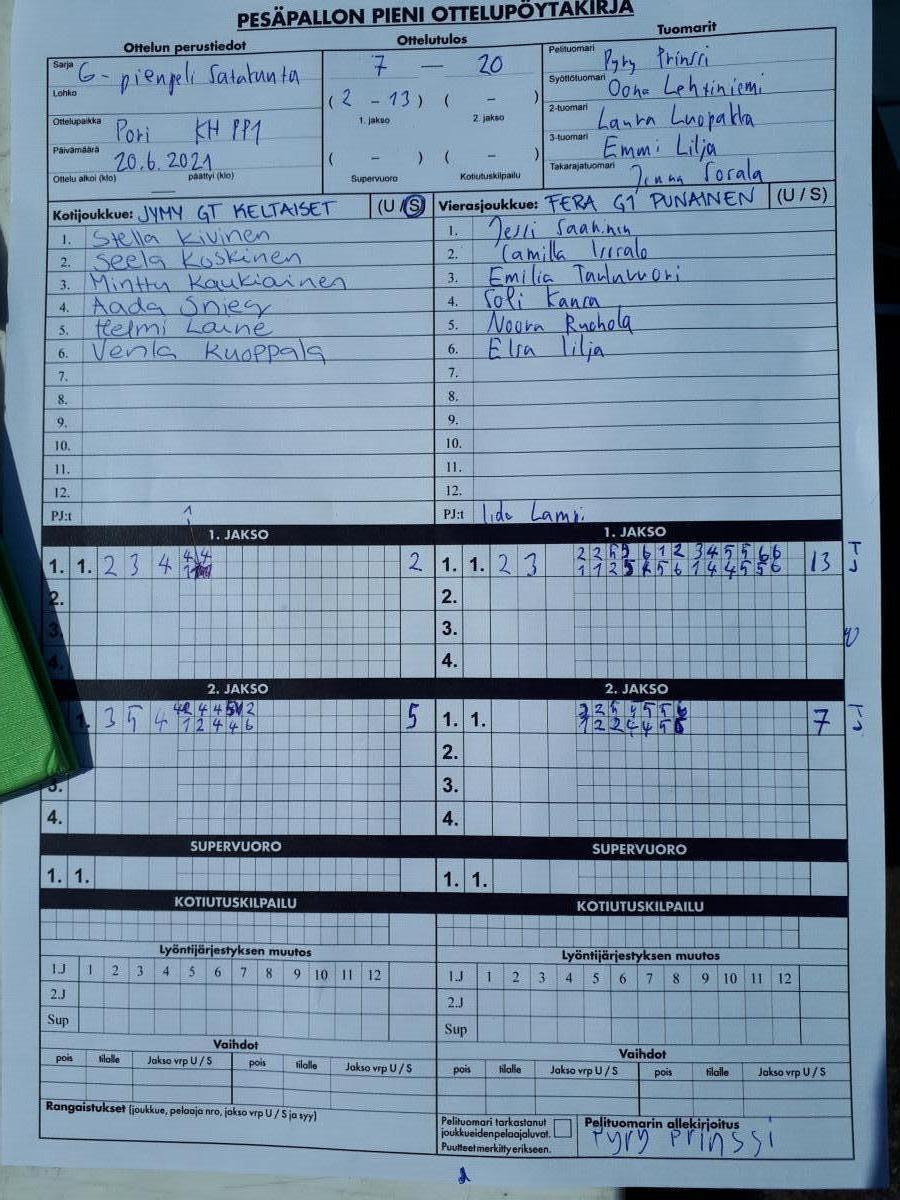 PESÄPALLON PIENI OTTELUPÖYTÄKIRJA
Ottelun perustiedot
Ottelutulos
Tuomarit
Sarja G-pienpeli Satakunta
Lohko
Ottelupaikka Pori KH PP1
Päivämäärä 20.6.2021
Ottelu alkoi (klo) päättyi (klo)
7 — 20
( 2 - 13 ) ( - )
1. jakso 2. jakso
( - ) ( - )
Supervuoro Kotiutuskilpailu
Pelituomari Pyry Prinssi
Syöttötuomari Oona Lehtiniemi
2-tuomari Laura
3-tuomari Emmi Lilja
Takarajatuomari Jenna
Kotijoukkue: JYMY GT KELTAISET (U / S)
1. Stella Kivinen
2. Seela Koskinen
3. Minttu Kaukiainen
4. Aada
5. Helmi Laine
6. Venla Kuoppala
7.
8.
9.
10.
11.
12.
PJ:t
Vierasjoukkue: FERA G1 PUNAINEN (U / S)
1.
2. Camilla
3. Emilia
4. Kanra
5. Noora Ruohola
6. Elsa Lilja
7.
8.
9.
10.
11.
12.
PJ:t Iida Lampi
1. JAKSO
1. 1. 2 3 4 2
2.
3.
4.
1. JAKSO
1. 1. 2 3 13
2.
3.
4.
2. JAKSO
1. 3 5 4 5
3.
4.
2. JAKSO
1. 1. 7
2.
3.
4.
SUPERVUORO
1. 1.
SUPERVUORO
1. 1.
KOTIUTUSKILPAILU
KOTIUTUSKILPAILU
Lyöntijärjestyksen muutos
1.J 1 2 3 4 5 6 7 8 9 10 11 12
2.J
Sup
Lyöntijärjestyksen muutos
1.J 1 2 3 4 5 6 7 8 9 10 11 12
2.J
Sup
Vaihdot
pois tilalle Jakso vrp U / S pois tilalle Jakso vrp U / S
Vaihdot
pois tilalle Jakso vrp U / S pois tilalle Jakso vrp U / S
Rangaistukset (joukkue, pelaaja nro, jakso vrp U / S ja syy)
Pelituomari tarkastanut
joukkueidenpelaajaluvat.
Puutteet merkitty erikseen.
Pelituomarin allekirjoitus
Pyry Prinssi